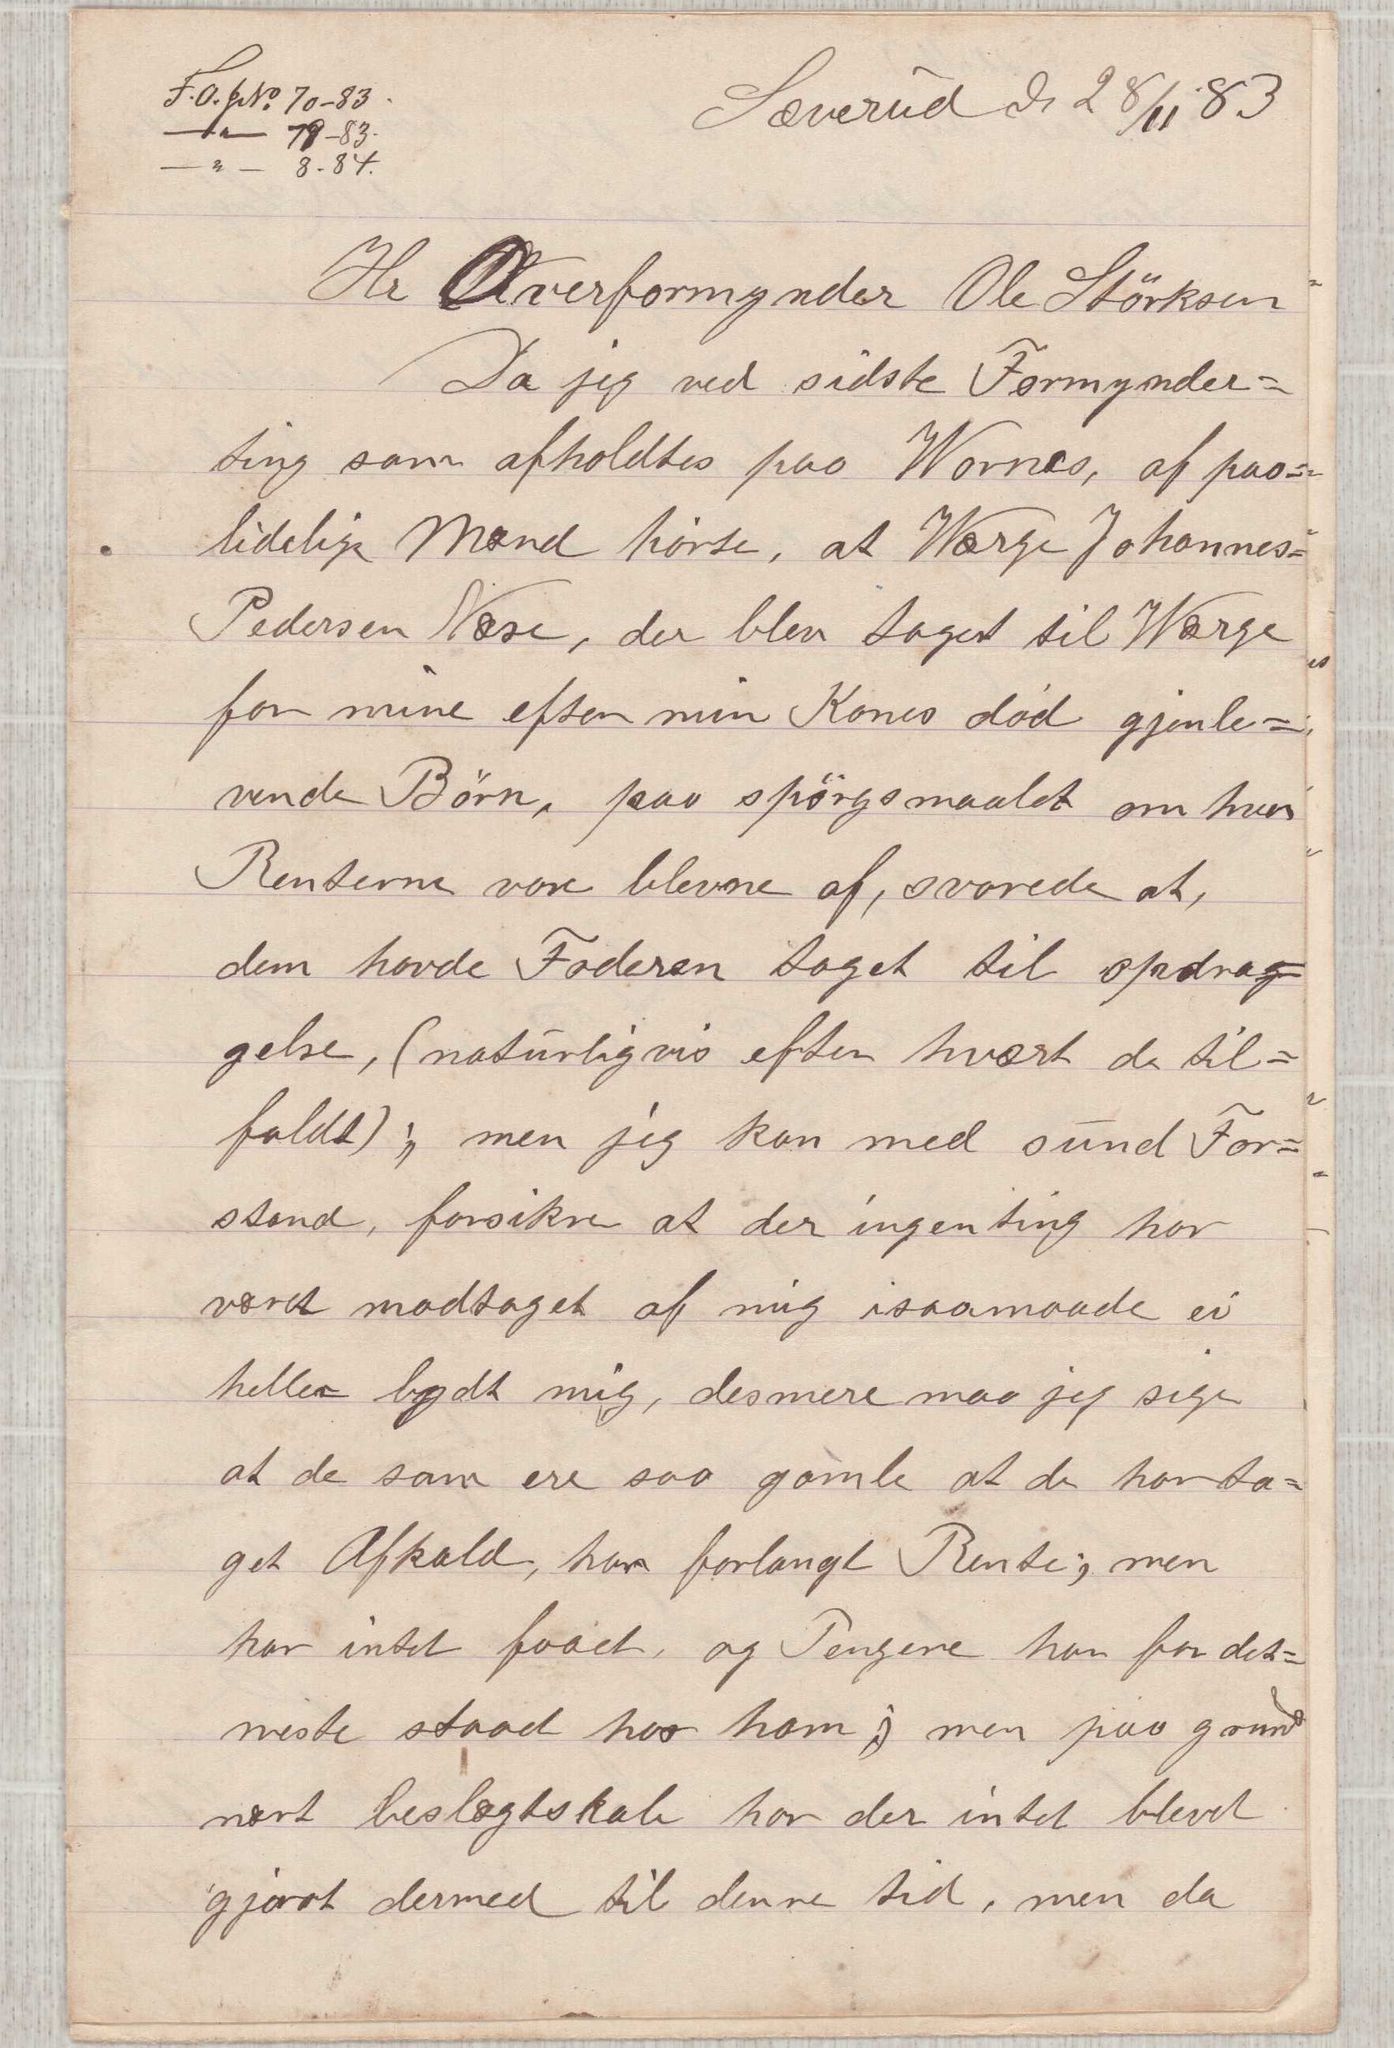 F.O.pNo 70-83.
—„— 79-83.
—„— 8-84.
Sæverud d. 28/11 83
Hr Overformynder Ole Störksen
Da jeg ved sidste Formynder=
ting som afholdtes paa Wornes, af paa=
lidelige Mænd hörte, at Wærge Johannes=
Pedersen Næse, der blev taget til Wærge
for mine efter min Kones död gjenle=
vende Börn, paa spörgsmaalet om hvor
Renterne vare blevne af, svarede at,
dem havde Faderen taget til opdrag=
gelse, (natúrligvis efter hvært de til=
faldt); men jeg kan med súnd For=
stand, forsikre at der ingenting har
været modtaget af mig isaamaade ei
heller bydt mig, desmere maa jeg sige
at de som ere saa gamle at de har ta=
get Afkald, har forlangt Rente; men
har intet faaet, og Pengene har for det=
meste staaet hos ham; men paa grund
nært beslægtskab har der intet blevet
gjort dermed til denne tid, men da